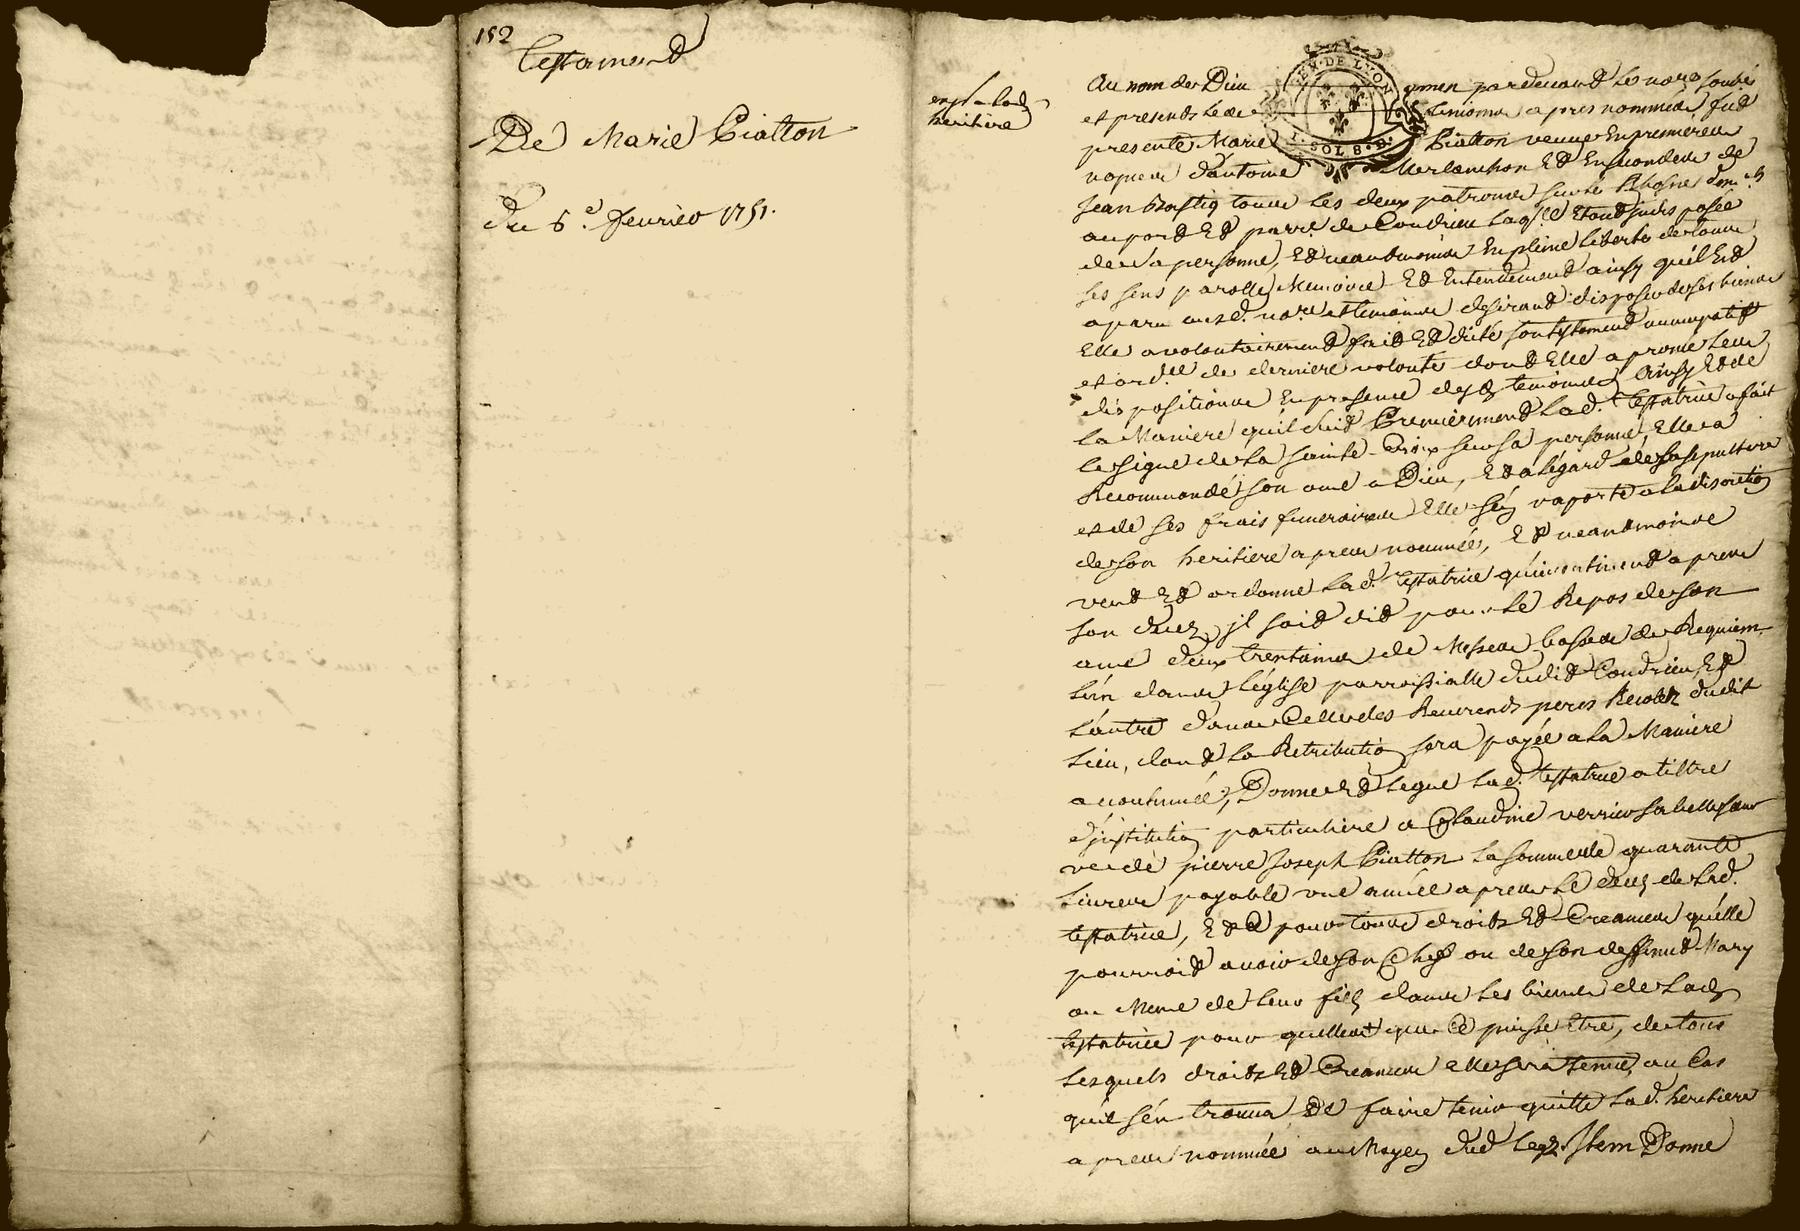 152
Testament
De Marie Piatton
du 5e. fevrier 1751.
heritiere
GEN. DE LYON
I. SOL 8. D.
Au nom de Dieu amen pardevant les nore soubsés
et presents les temoins apres nommés fut
presente Marie Piatton veuve en premieres
nopces d'antoine Merlanchon Et En secondes de
Jean tous les deux patrons sur le Rhosne
au port Et parre. de Condrieu laqlle Etant
de sa personne, Et neantmoins En pleine liberté de tous
ses sens parolle Memoire Et Entendement ainsy qu'il Est
aparu ausd. nore et temoins desirant disposer de ses biens
Elle a volontairement fait Et dicté son testament nuncupatif
et ordce de derniere volonté dont Elle a promé les
dispositions En presence desd temoins ainsy Et de
la Maniere qu'il suit Premierement lad. testatrice a fait
le signe de la sainte Croix sur sa personne, Elle a
Recommandé son ame a Dieu, Et a l'égard de sa sepulture
et de ses frais funeraires Elle s'en raporte a la discretion
de son heritiere apres nommée, Et neantmoins
veut Et ordonne lad. testatrice qu'incontinent apres
son decez, il soit dit pour le Repos de son
ame deux trentaines de Messes basses de Requiem
l'un dans l'église parroissialle dudit Condrieu, Et
l'autre dans Celle des Reverends peres Recolets dudit
Lieu, dont la Retribution sera payée a la Maniere
accoutumée, Donne Et Legue lad. testatrice a tiltre
d'institution particuliere a Claudine verrier sa belle sœur
ve de pierre Joseph Piatton la somme de quarante
Livres payable une année apres le decez de lad.
testatrice, Et Ce pour tous droits Et Creances qu'elle
pourroit avoir de son Chef ou de son deffunt Mary
ou Meme de leur fils dans les biens de lad
testatrice pour quelleque Ce puisse Etre, de tous
lesquels droits Et Creances elle sera tenue, au Cas
qu'il s'en trouva, de faire tenir quitte lad. heritiere
apres nommée au Moyen dud legs. Item Donne